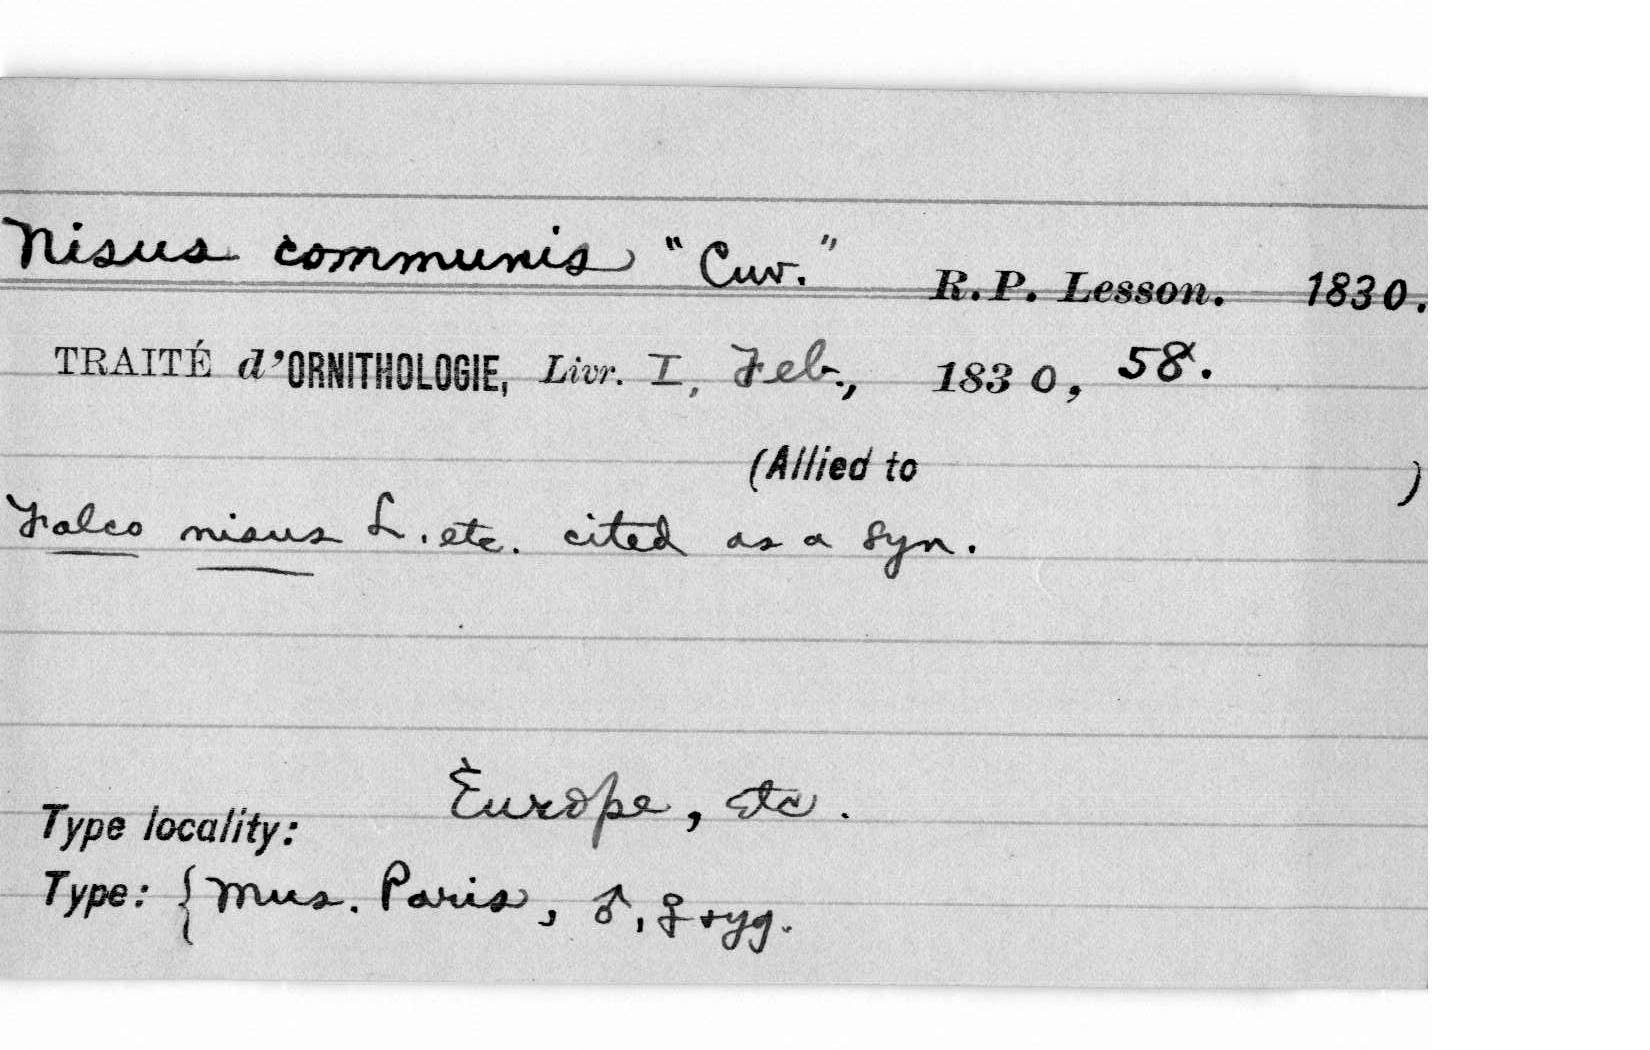 Nisus communis "Cuv." R.P. Lesson. 1830.
TRAITÉ d'ORNITHOLOGIE, Livr. I, Feb., 1830, 58.
(Allied to )
Falco nisus L. etc. cited as a syn.
Type locality: Europe, etc.
Type: { Mus. Paris, ♂, ♀ + yg.